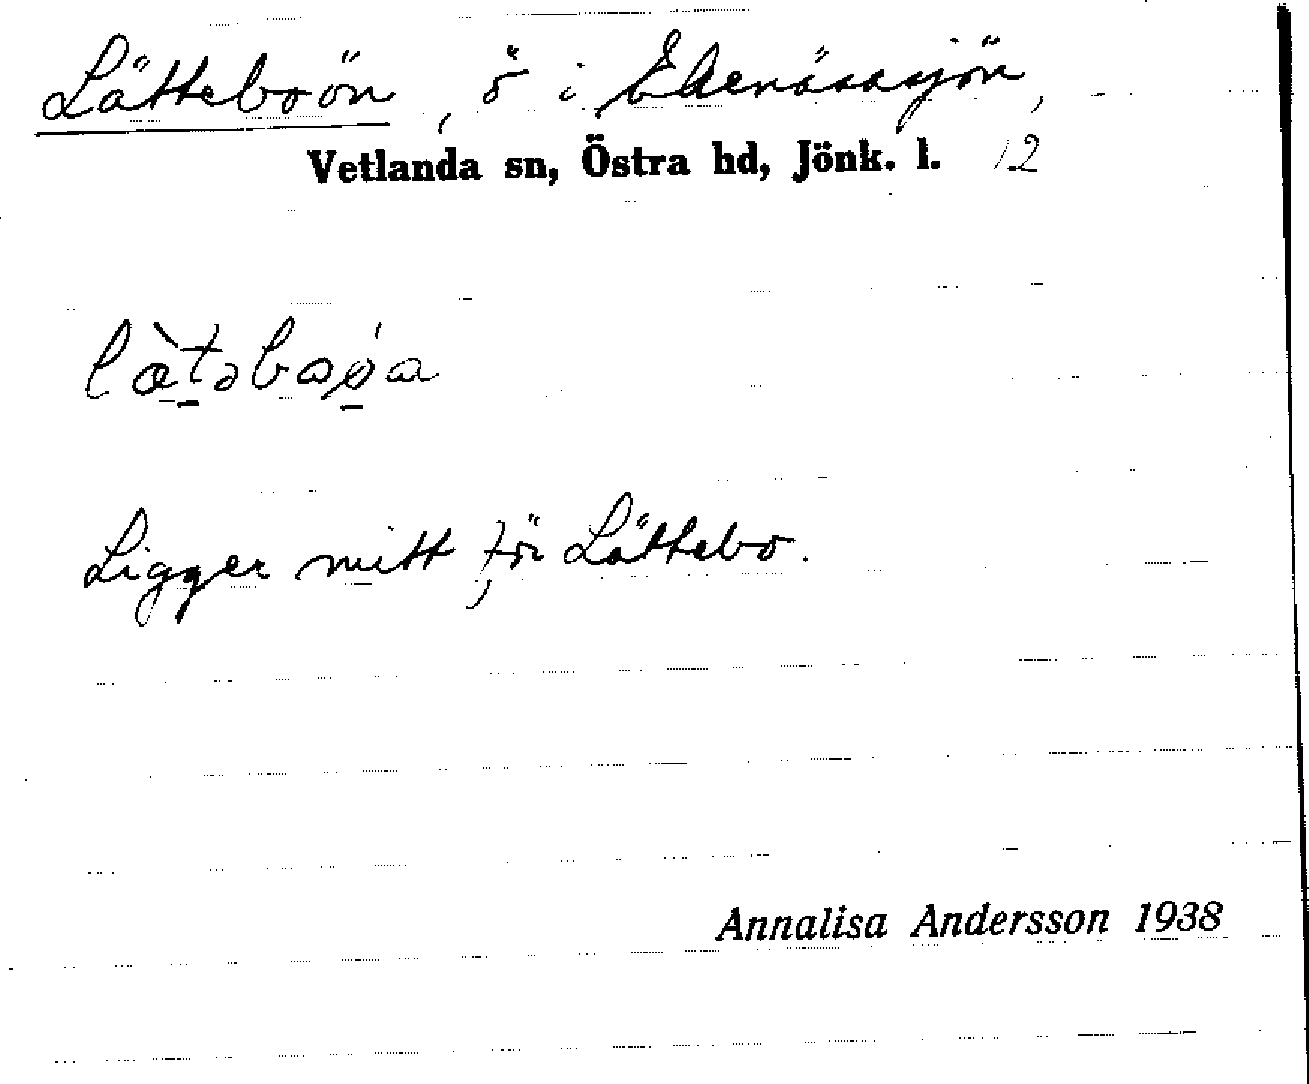 Lätteboön, ö i Ekenässjön,
Vetlanda sn, Östra hd, Jönk. l. 12
læ̀təbaǿa
Ligger mitt för Lättebo.
Annalisa Andersson 1938